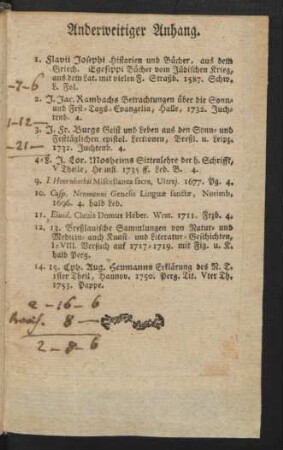 Anderweitiger Anhang.
1. Flavii Josephi Historien und Bücher, aus dem
Griech. Egesippi Bücher vom Jüdischen Krieg,
aus dem Lat. mit vielen F. Straßb. 1587. Schw.
L. Fol.
-7-6
2. J. Jac. Rambachs Betrachtungen über die Sonn-
und Fest-Tags-Evangelia, Halle, 1732. Juch-
tenb. 4.
1-12-
3. J. Fr. Burgs Geist und Leben aus den Sonn- und
Festtäglichen epistol. Lectionen, Breßl. u. Leipz.
1732. Juchtenb. 4.
-21-
4-8. J. Lor. Mosheims Sittenlehre der h. Schrifft,
V Theile, Helmst. 1735 ff. Led. B. 4.
9. J. Hoornbeckii Miscellanea sacra, Ultraj. 1677. Pg. 4.
10. Casp. Neumanni Genesis Linguæ sanctæ, Norimb.
1696. 4. halb Led.
11. Ejusd. Clavis Domus Heber. Wrat. 1711. Frzb. 4.
12. 13. Breßlauische Sammlungen von Natur- und
Medicin- auch Kunst- und Literatur-Geschichten,
I-VIII. Versuch auf 1717-1719. mit Fig. u. K.
halb Perg.
14. 15. Cph. Aug. Heumanns Erklärung des N. T.
1ster Theil, Hannov. 1750. Perg. Tit. Vter Th.
1753. Pappe.
2-16-6
8-
2-8-6